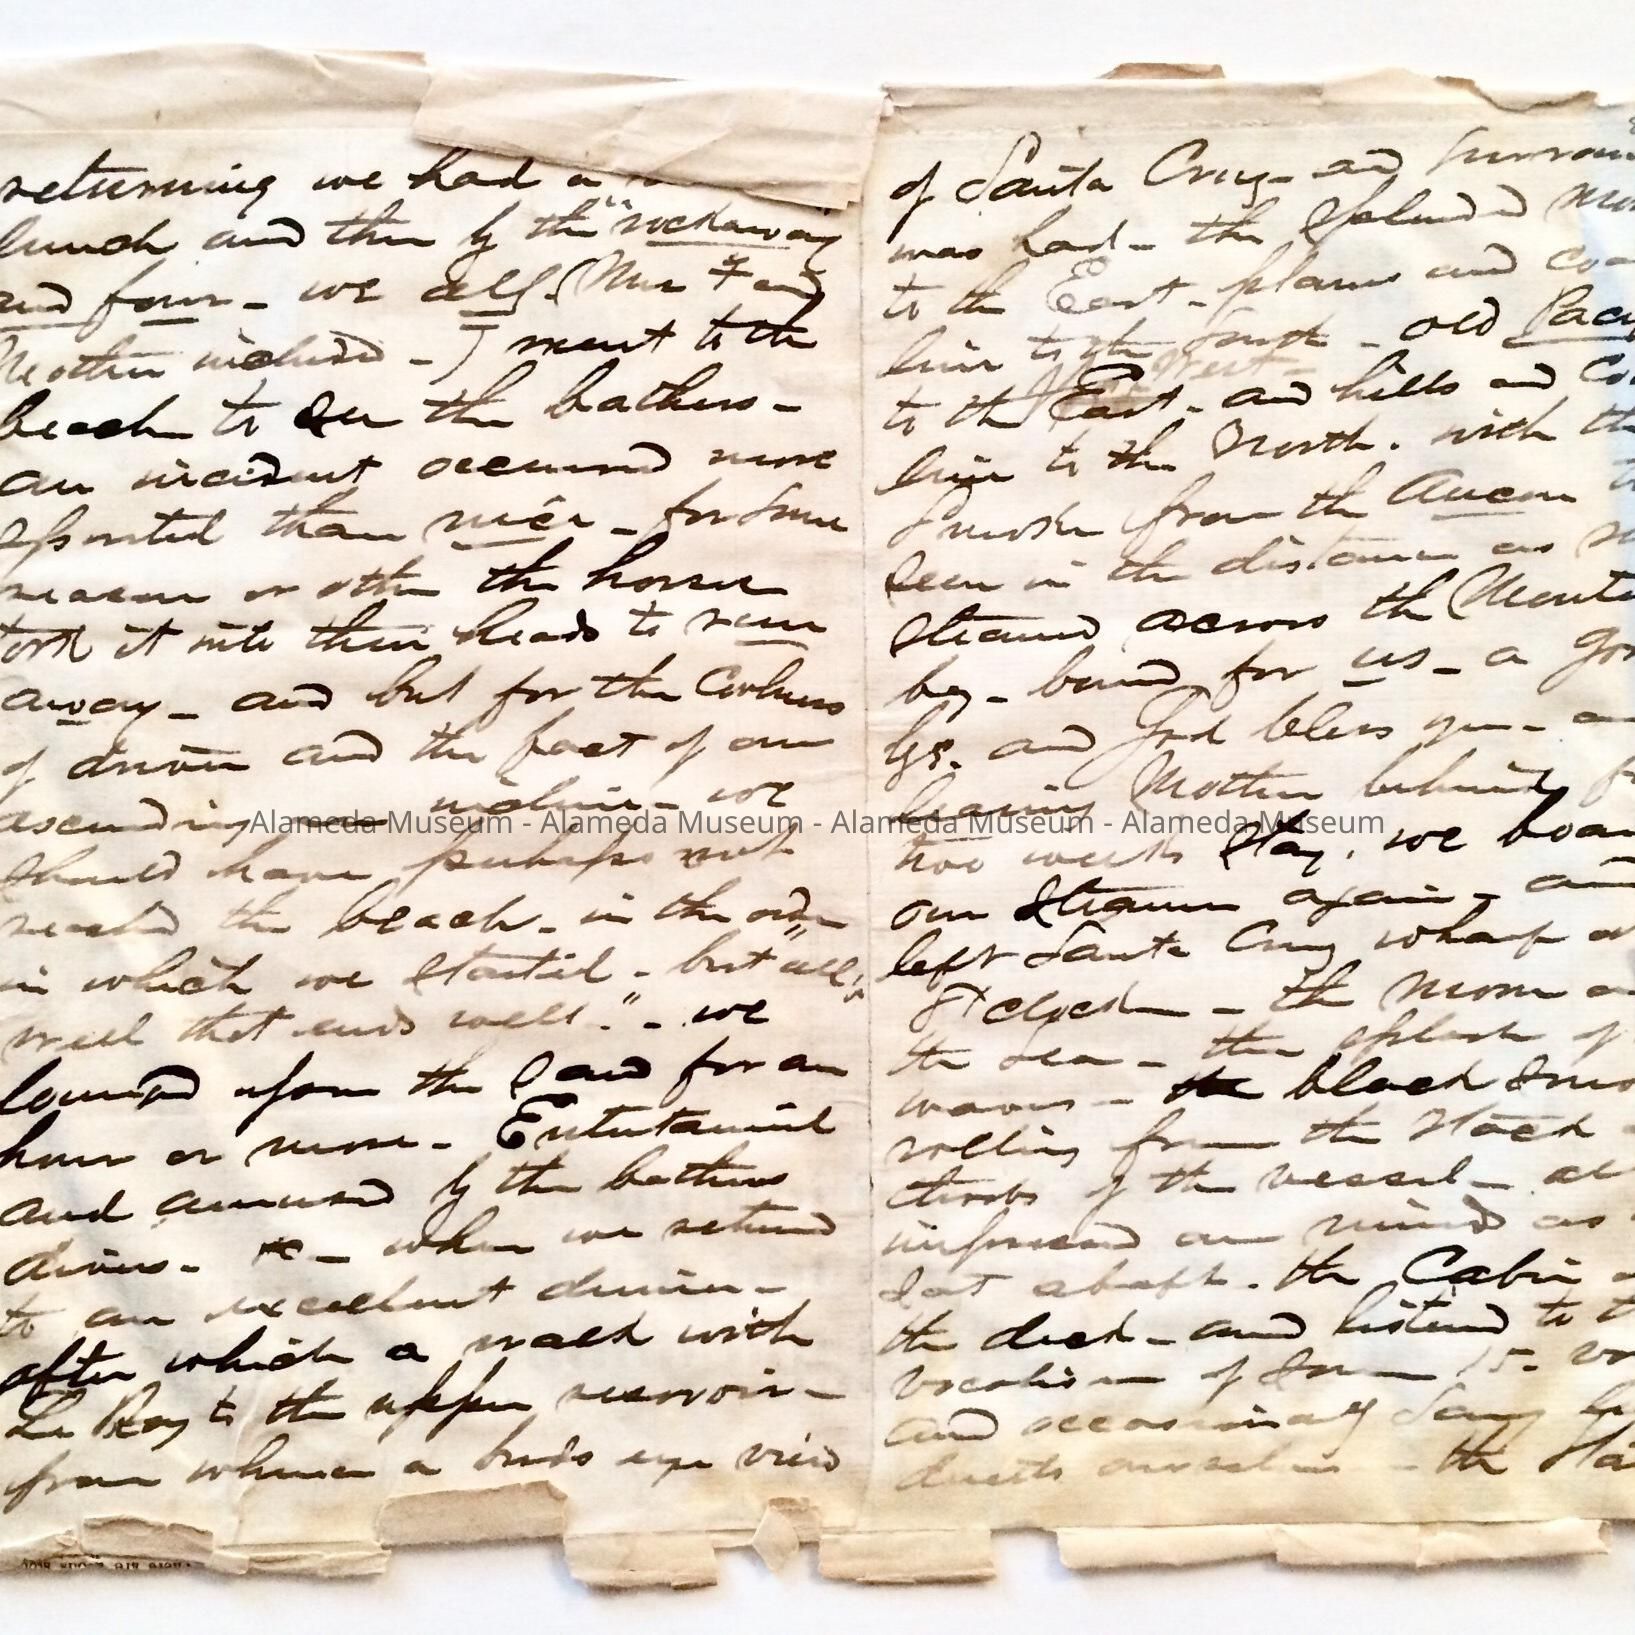 returning we had a
lunch and then by the "rockaway
and four - we all (Mrs F and
Mother included -) went to the
beach to see the bathers -
an incident occurred more
spirited than nice - for some
reason or other the horses
took it into their heads to run
away - and but for the coolness
of driver and the fact of our
ascending incline - we
should have perhaps not
reached the beach - in the order
in which we started - but "all's
well that ends well." - we
lounged upon the sand for an
hour or more - Entertained
and amused by the bathers
divers - &c - when we returned
to an excellent dinner -
after which a walk with
Le Roy to the upper reservoir -
from whence a birds eye view
of Santa Cruz - and
was had - the splendid
to the East - plains and
line to the South - old
West -
to the East - and hills and
line to the North. with the
smoke from the Ancon
seen in the distance as
steamed across the
bay - bound for us - a
bye. and God bless you -
leaving Mother behind
two weeks stay, we
our steamer again - and
left Santa Cruz wharf at
8 oclock - the moon
the sea - the splash of
waves - the black
rolling from the stack
of the vessel -
impressed our minds as
sat abaft. the Cabin
the deck - and listened to
of some 15 -
and occasionally sang
duetts ourselves - the
Alameda Museum - Alameda Museum - Alameda Museum - Alameda Museum